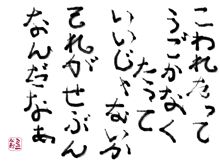 こわれたって
うごかなく
たって
いいじゃないか
それがせぶん
なんだなあ